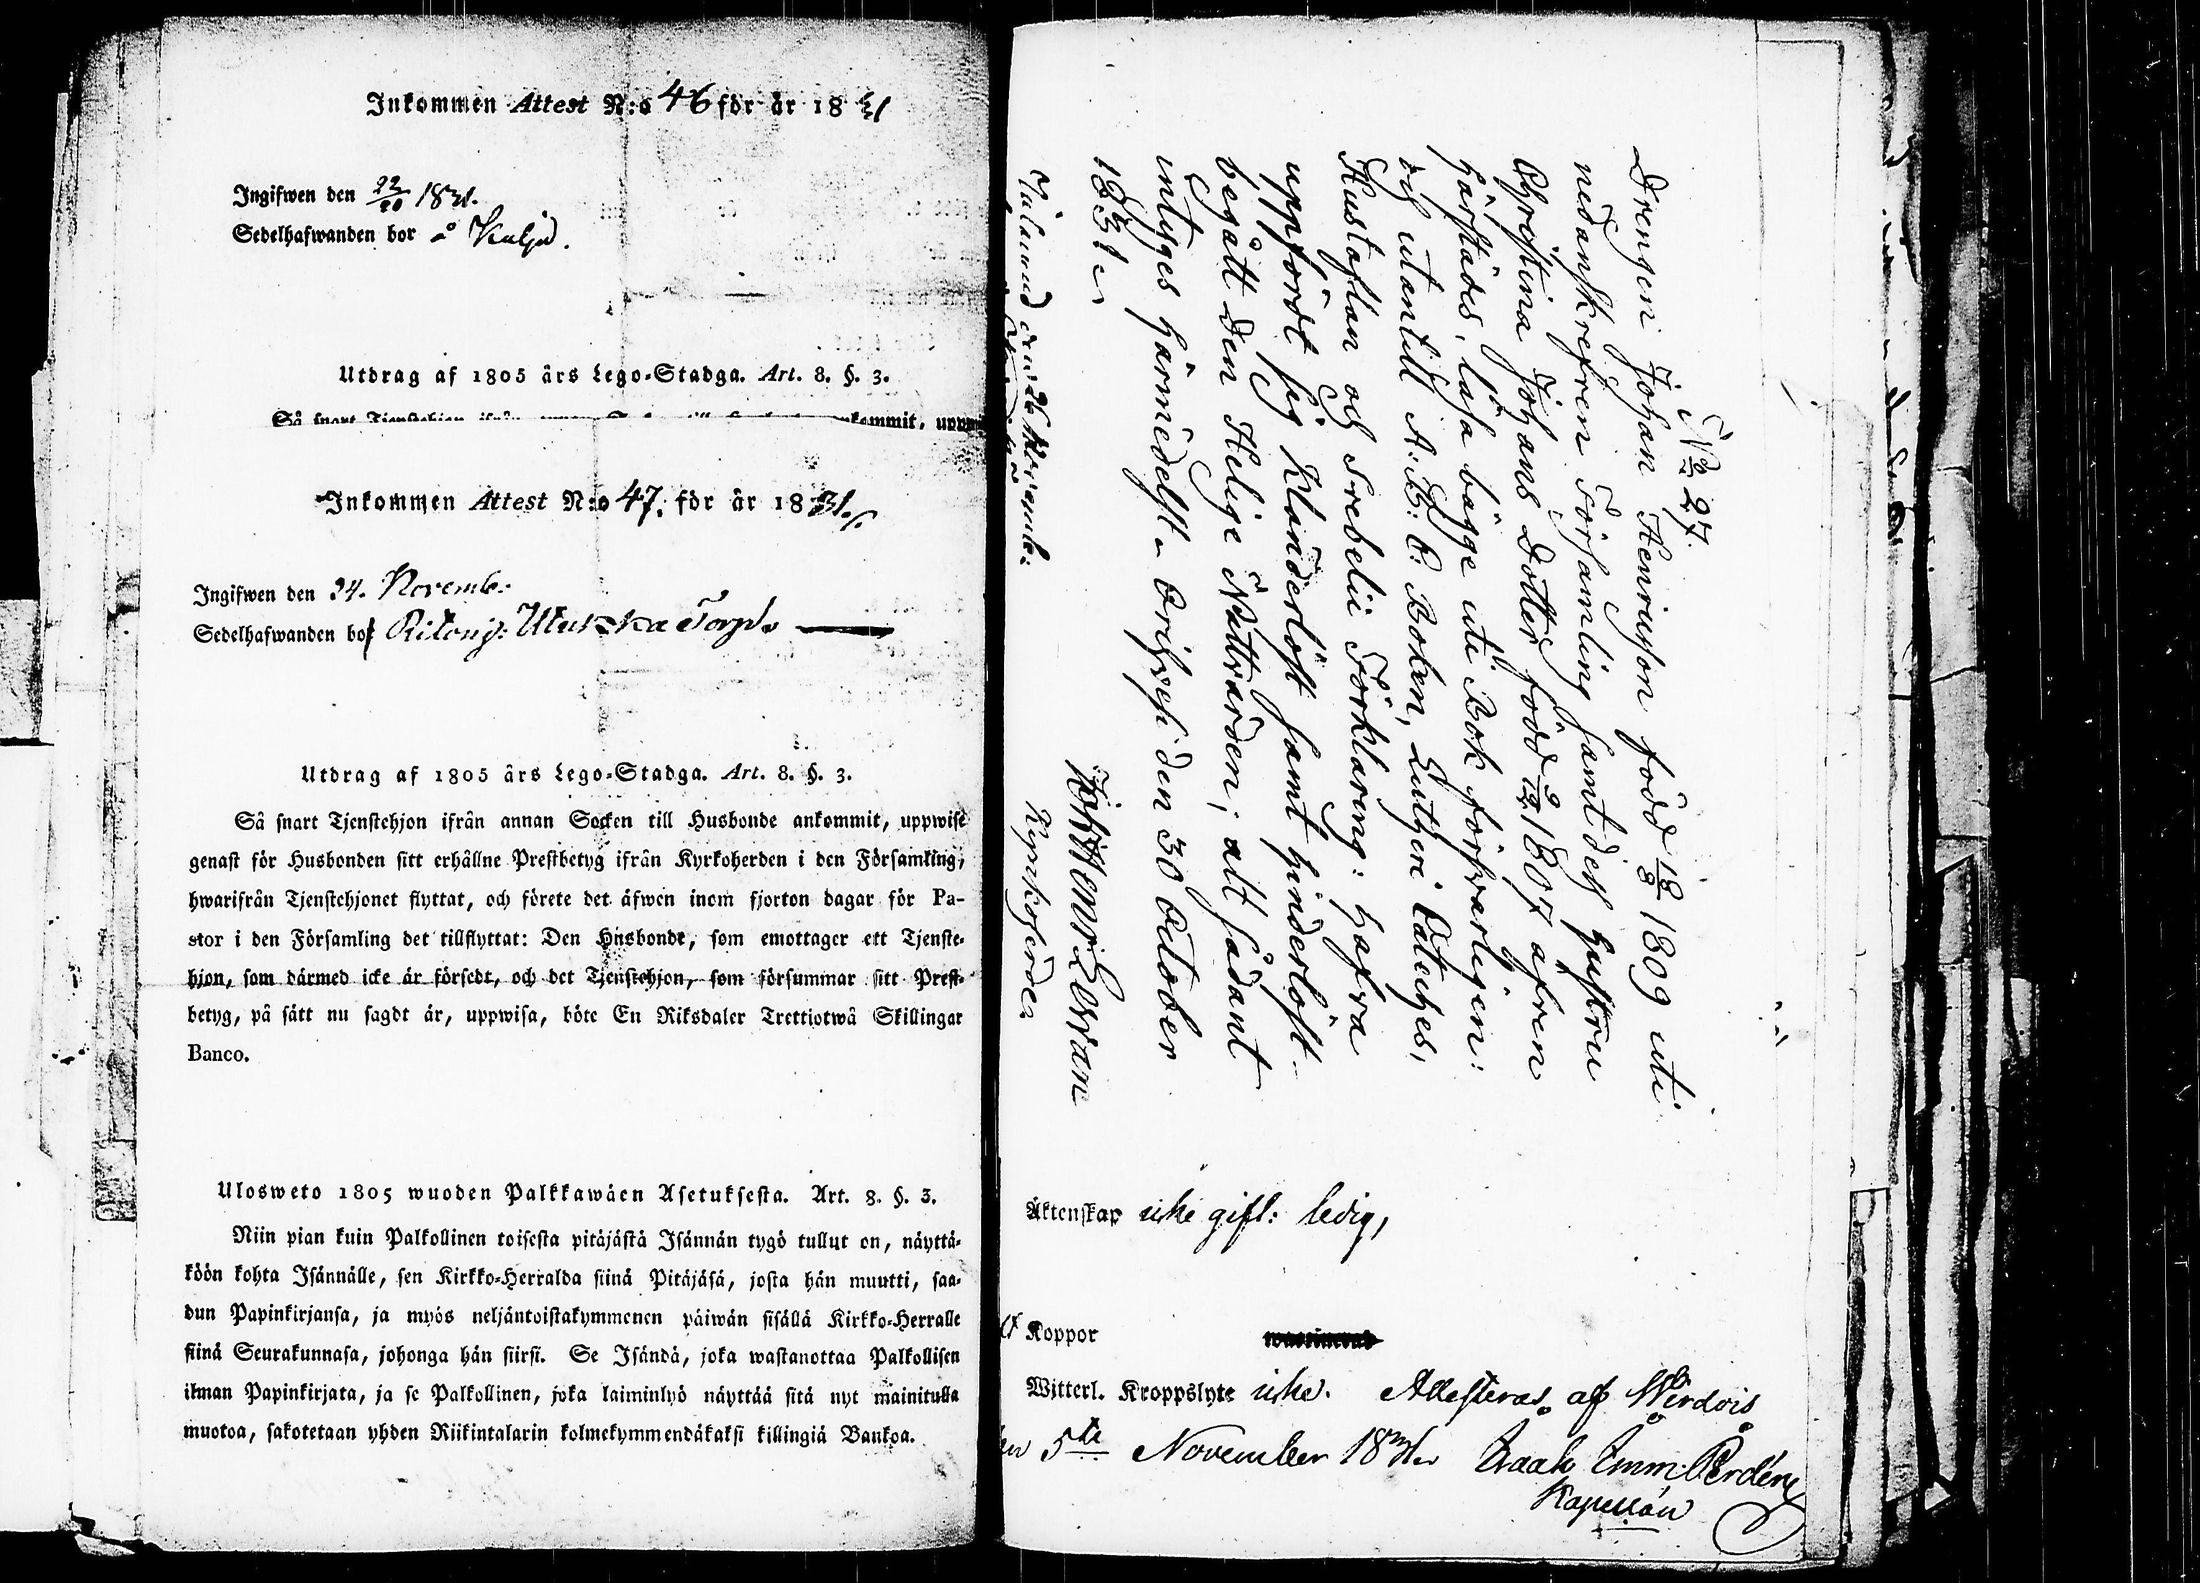 Inkommen Attest N:o 46 för år 1831
Ingifwen den 22/10 1831.
Sedelhafwanden bor å
Utdrag af 1805 års Lego-Stadga. Art. 8. §. 3.
Så snart Tjenstehjon ifrån ankommit,
Inkommen Attest N:o 47. för år 1831.
Ingifwen den 24. Novemb.
Sedelhafwanden bor Torp
Utdrag af 1805 års Lego-Stadga. Art. 8. §. 3.
Så snart Tjenstehjon ifrån annan Socken till Husbonde ankommit, uppwise
genast för Husbonden sitt erhållne Prestbetyg ifrån Kyrkoherden i den Församling,
hwarifrån Tjenstehjonet flyttat, och förete det äfwen inom fjorton dagar för Pa-
stor i den Församling det tillflyttat: Den Husbonde, som emottager ett Tjenste-
hjon, som därmed icke är försedt, och det Tjenstehjon, som försummar sitt Prest-
betyg, på sätt nu sagdt är, uppwisa, böte En Riksdaler Trettiotwå Skillingar
Banco.
Ulosweto 1805 wuoden Palkkawäen Asetuksesta. Art. 8. §. 3.
Niin pian kuin Palkollinen toisesta pitäjästä Isännän tygö tullut on, näyttä-
köön kohta Isännälle, sen Kirkko-Herralda siinä Pitäjäsä, josta hän muutti, saa-
dun Papinkirjansa, ja myös neljäntoistakymmenen päiwän sisällä Kirkko-Herralle
siinä Seurakunnasa, johonga hän siirsi. Se Isändä, joka wastanottaa Palkollisen
ilman Papinkirjata, ja se Palkollinen, joka laiminlyö näyttää sitä nyt mainitulla
muotoa, sakotetaan yhden Riikintalarin kolmekymmendäkaksi killingiä Bankoa.
No 27.
Drengen Johan Henricsson född 18/8 1809 uti
nedanskrefven Församling samt dess hustru
Christina Johans Dotter född 9/12 1807 äfven
härstädes, läsa bägge uti Bok försvarligen:
och utantill A.B.C. Boken, Lutheri Cateches,
Hustaflan och Svebelii Förklaring: hafva
uppfördt sig klanderlöst samt hinderlöst
begått den Helige Nattvarden; alt sådant
intyges härmedelst. den 30 October
1831.
Joh. Henr.
Kyrkoherde
den 26 Novemb:
Äktenskap icke gift: ledig,
Koppor
Witterl. Kroppslyte icke. Attesteras af Wirdois
den 5te November 1831. Isaak Imm:
Kapellan